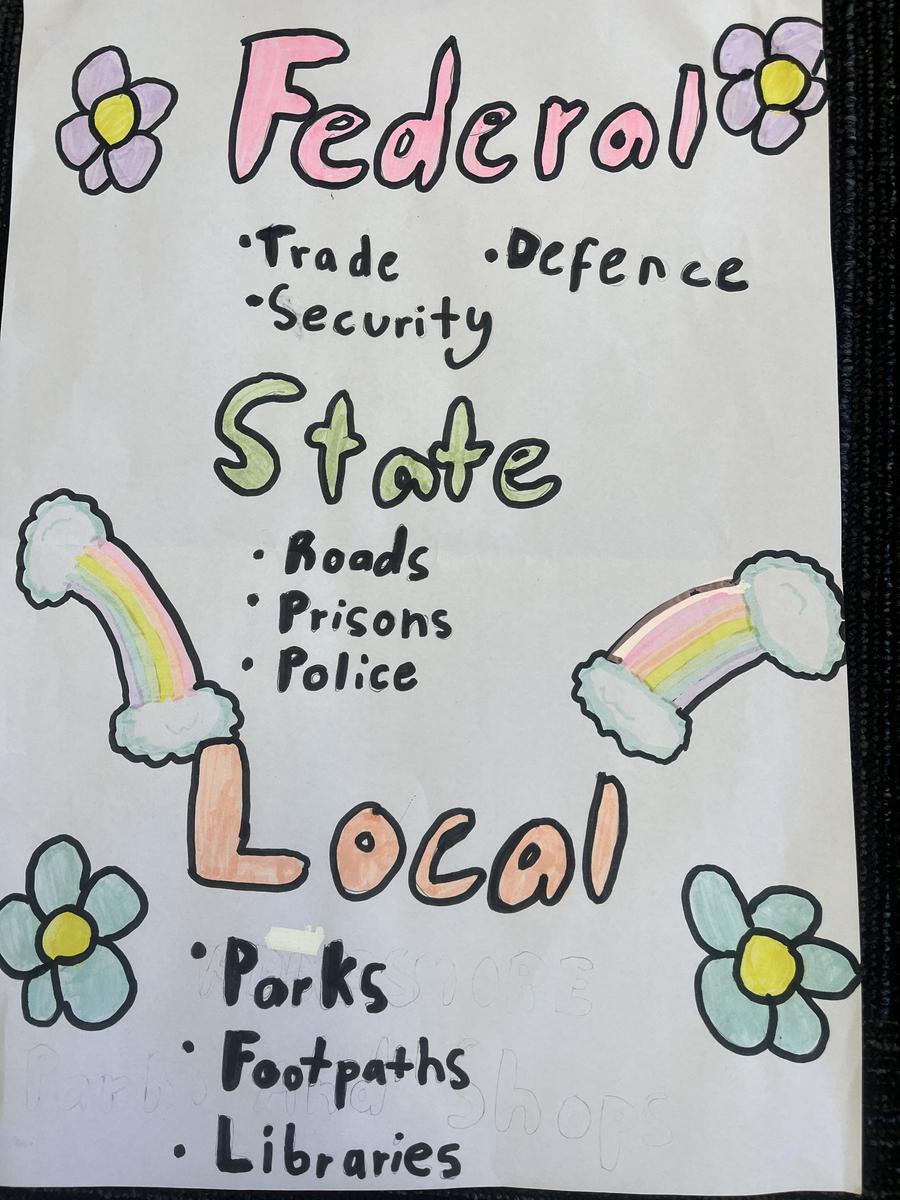 Federal
•Trade •Defence
•Security
State
• Roads
• Prisons
• Police
Local
• Parks
STORE
• Footpaths
and Shops
• Libraries